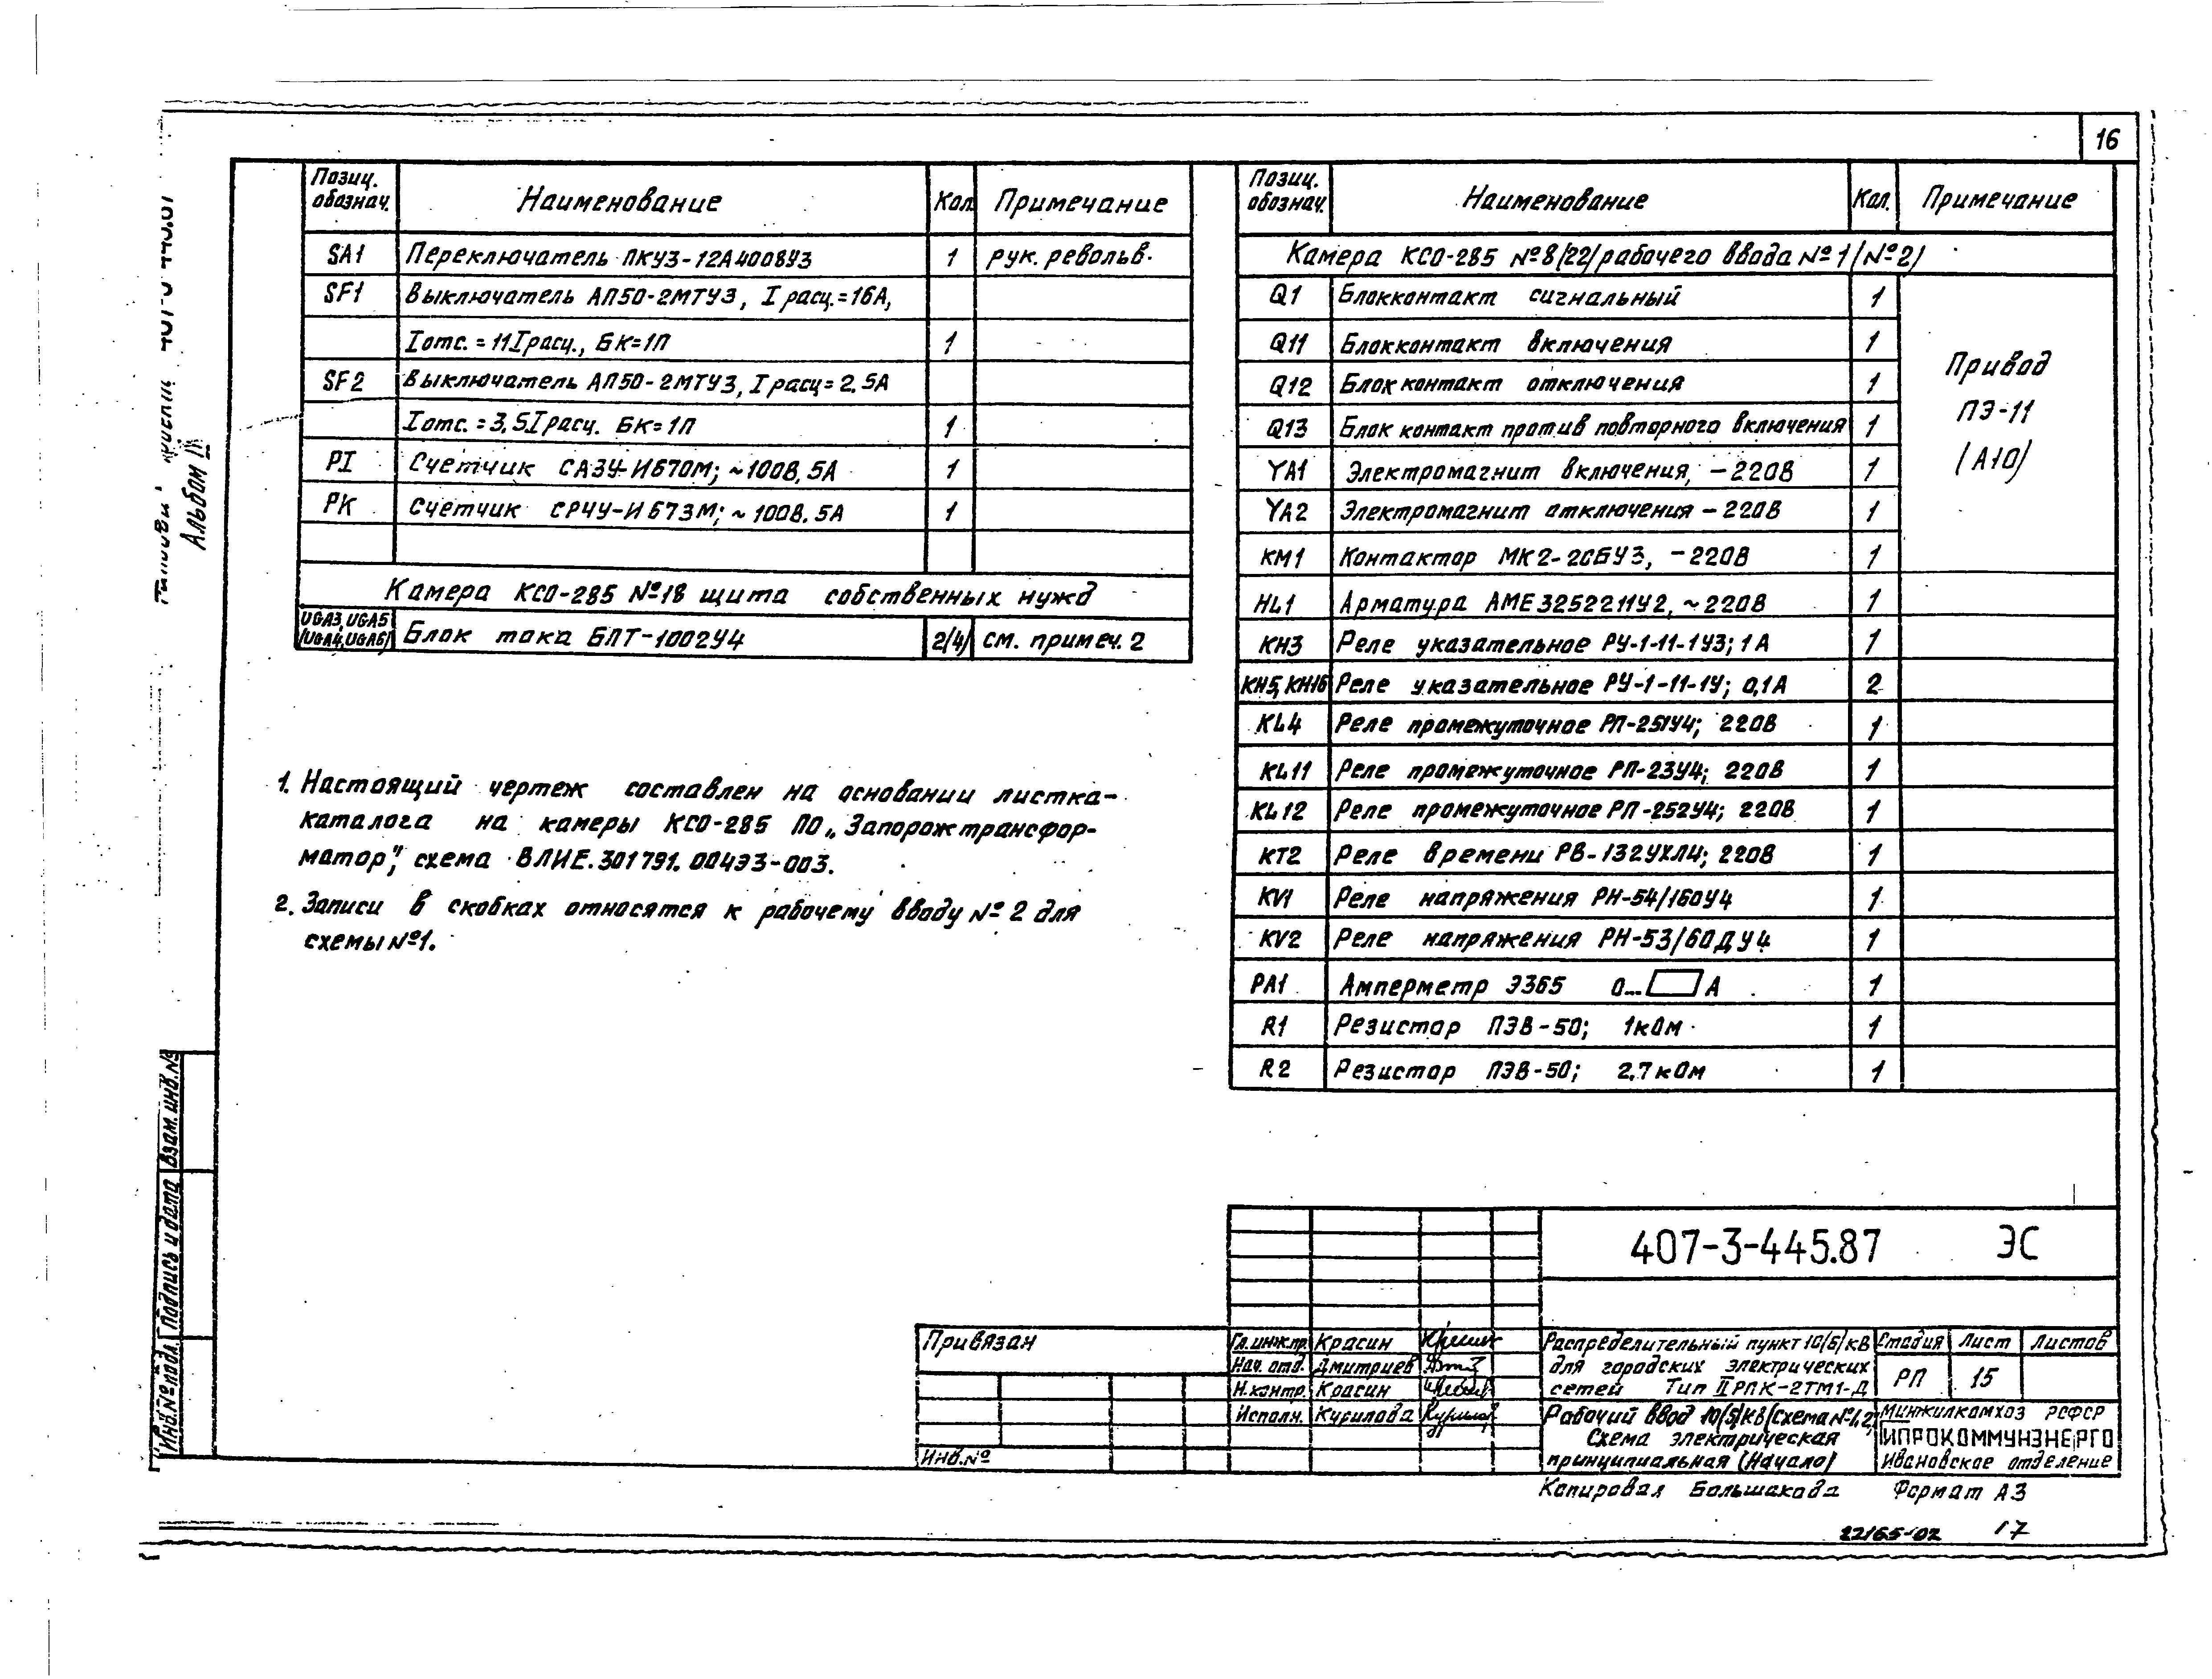 16
Позиц. обознач. Наименование Кол. Примечание
SA1 Переключатель ПКУ3-12А4008У3 1 рук. револьв.
SF1 Выключатель АП50-2МТУ3, I расц.=16А,
Iотс.=11Iрасц., БК=1П 1
SF2 Выключатель АП50-2МТУ3, I расц=2,5А
Iотс.=3,5Iрасц. БК=1П 1
PI Счетчик САЗУ-И670М; ~100В, 5А 1
PK Счетчик СРЧУ-И673М; ~100В. 5А 1
Камера КСО-285 №18 щита собственных нужд
UGA3, UGA5 /UGA4, UGA6/ Блок тока БПТ-1002У4 2/4/ см. примеч. 2
1. Настоящий чертеж составлен на основании листка-
каталога на камеры КСО-285 ПО „Запорожтрансфор-
матор", схема ВЛИЕ.301791.004Э3-003.
2. Записи в скобках относятся к рабочему вводу №2 для
схемы №1.
Позиц. обознач. Наименование Кол. Примечание
Камера КСО-285 №8/22/ рабочего ввода №1/№2/
Q1 Блокконтакт сигнальный 1
Q11 Блокконтакт включения 1
Q12 Блокконтакт отключения 1
Q13 Блокконтакт против повторного включения 1
YA1 Электромагнит включения, -220В 1
YA2 Электромагнит отключения -220В 1
KM1 Контактор МК2-20БУ3, -220В 1
Привод
ПЭ-11
/А10/
HL1 Арматура АМЕ325221У2, ~220В 1
KH3 Реле указательное РУ-1-11-1У3; 1А 1
KH5, KH16 Реле указательное РУ-1-11-1У; 0,1А 2
KL4 Реле промежуточное РП-251У4; 220В 1
KL11 Реле промежуточное РП-23У4; 220В 1
KL12 Реле промежуточное РП-252У4; 220В 1
KT2 Реле времени РВ-132УХЛ4; 220В 1
KV1 Реле напряжения РН-54/160У4 1
KV2 Реле напряжения РН-53/60ДУ4 1
PA1 Амперметр Э365 0... А 1
R1 Резистор ПЭВ-50; 1кОм 1
R2 Резистор ПЭВ-50; 2,7кОм 1
Альбом II
Взам. инв.№
Подпись и дата
Инв.№ подл.
407-3-445.87 ЭС
Привязан
Инв.№
Гл.инж.пр. Красин
Нач. отд. Дмитриев
Н.контр. Красин
Исполн. Курилова
Распределительный пункт 10/6/кВ
для городских электрических
сетей Тип II РПК-2ТМ1-Д
Стадия Лист Листов
РП 15
Рабочий ввод 10/6/кВ/схема №1,2/
Схема электрическая
принципиальная (Начало)
Минжилкомхоз РСФСР
ГИПРОКОММУНЭНЕРГО
Ивановское отделение
Копировал Большакова Формат А3
22165-02 17